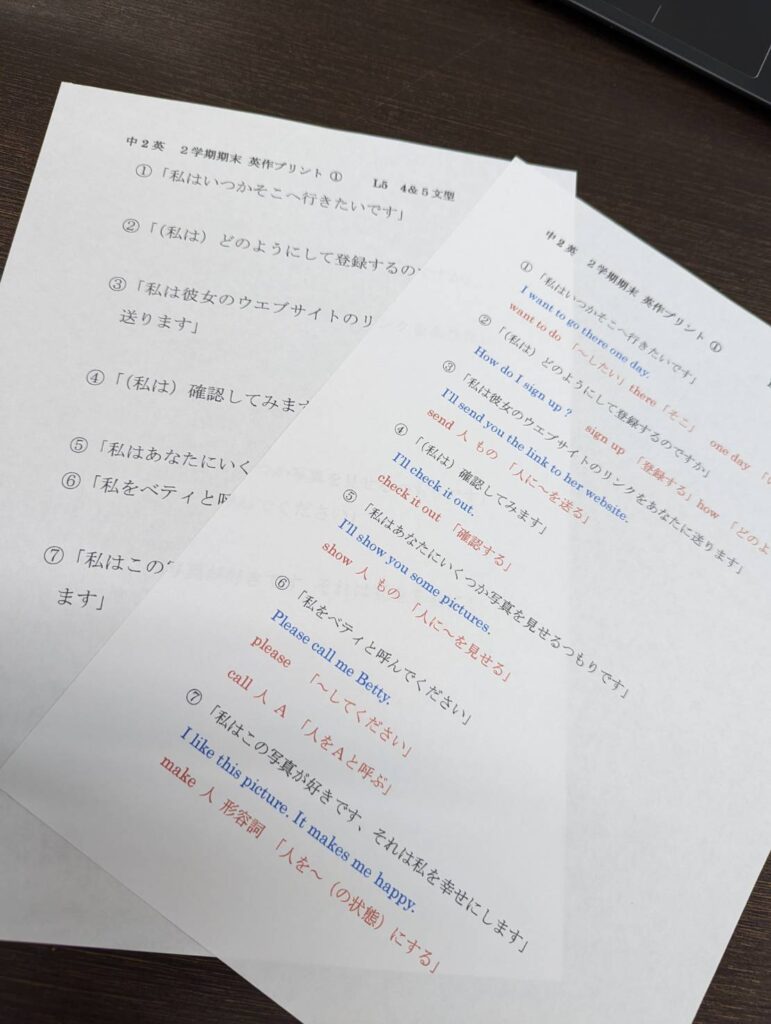 中2英 2学期期末 英作プリント ① L5 4&5文型
①「私はいつかそこへ行きたいです」
②「(私は) どのようにして登録するの
③「私は彼女のウエブサイトのリンク
送ります」
④「(私は) 確認してみます
⑤「私はあなたにいく
⑥「私をベティと呼
⑦「私はこの
ます」
中2英 2学期期末 英作プリント ①
①「私はいつかそこへ行きたいです」
I want to go there one day.
want to do 「～したい」there「そこ」 one day
②「(私は) どのようにして登録するのですか」
How do I sign up ? sign up 「登録する」how 「どのよ
③「私は彼女のウエブサイトのリンクをあなたに送ります」
I'll send you the link to her website.
send 人 もの 「人に～を送る」
④「(私は) 確認してみます」
I'll check it out.
check it out 「確認する」
⑤「私はあなたにいくつか写真を見せるつもりです」
I'll show you some pictures.
show 人 もの 「人に～を見せる」
⑥「私をベティと呼んでください」
Please call me Betty.
please 「～してください」
call 人 A 「人をAと呼ぶ」
⑦「私はこの写真が好きです、それは私を幸せにします」
I like this picture. It makes me happy.
make 人 形容詞 「人を～（の状態）にする」